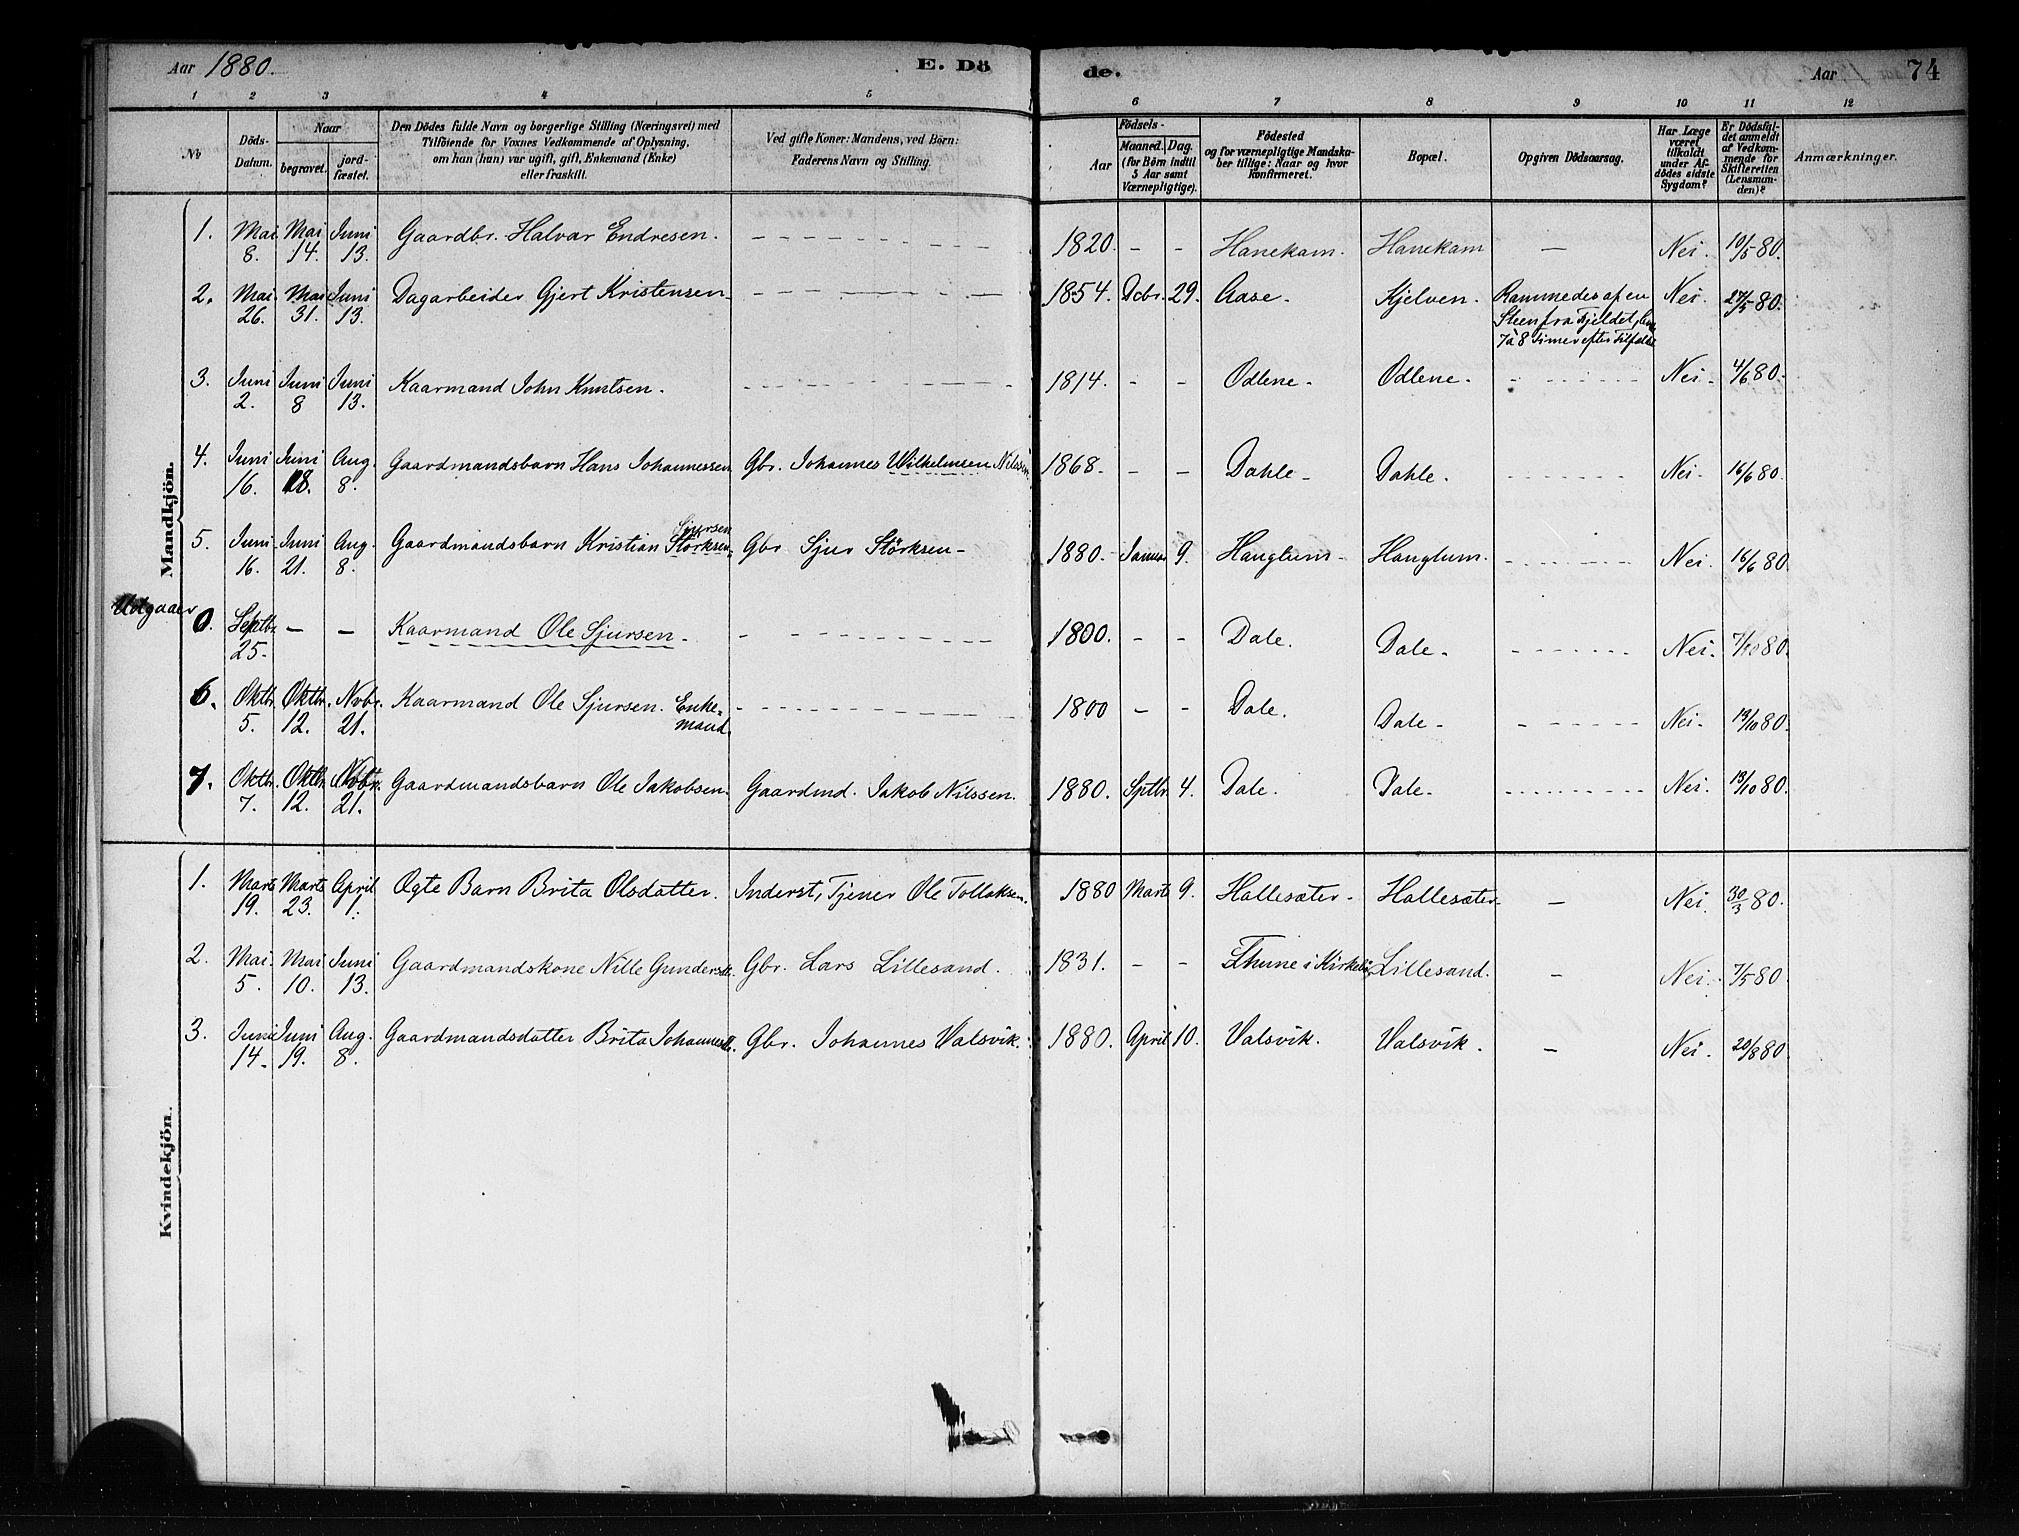 Aar 1880. E. Dö de. Aar 74
1 2 3 4 5 6 7 8 9 10 11 12
No
Döds-
Datum.
Naar
begravet.
jord-
fæstet.
Den Dödes fulde Navn og borgerlige Stilling (Næringsvei) med
Tilföiende for Voxnes Vedkommende af Oplysning,
om han (hun) var ugift, gift, Enkemand (Enke)
eller fraskilt.
Ved gifte Koner: Mandens, ved Börn:
Faderens Navn og Stilling.
Födsels-
Aar
Maaned. Dag.
(for Börn indtil
5 Aar samt
Værnepligtige).
Födested
og for værnepligtige Mandska-
ber tillige: Naar og hvor
Konfirmeret.
Bopæl.
Opgiven Dödsaarsag.
Har Læge
været
tilkaldt
under Af-
dödes sidste
Sygdom?
Er Dödsfal-
det anmeldt
af Vedkom-
mende for
Skifteretten
(Lensman-
den)?
Anmærkninger.
Mandkjön.
1. Mai Mai Juni Gaardbr. Halvar Endresen. 1820. - - Hanekam. Hanekam - Nei. 10/5 80.
8. 14. 13.
2. Mai Mai Juni Dagarbeider Gjert Kristensen 1854. Dcbr. 29. Aase. Kjelven. Rammedes af en Nei. 27/5 80.
26. 31. 13. Steen fra Fjeldet,
7 à 8 Timer efter
3. Juni Juni Juni Kaarmand John Knutsen. 1814. - - Odlene. Odlene. Nei. 4/6 80.
2. 8 13.
4. Juni Juni Aug. Gaardmandsbarn Hans Johannessen Gbr. Johannes Wilhelmsen Nilssen 1868. - - Dahle. Dahle. Nei. 16/6 80.
16. 18. 8.
Sjursen
5. Juni Juni Aug. Gaardmandsbarn Kristian Störksen Gbr Sjur Störksen 1880. Januar 9. Hauglum. Hauglum. Nei. 16/6 80
16. 21. 8.
Udgaaer 0. Septbr. - - Kaarmand Ole Sjursen. 1800. - - Dale. Dale. Nei. 7/10 80.
25.
6. Oktbr. Oktbr. Nvbr. Kaarmand Ole Sjursen. Enke- 1800 - - Dale. Dale. Nei. 13/10 80.
5. 12. 21. mand.
7. Oktbr. Oktbr. Nvbr. Gaardmandsbarn Ole Jakobsen. Gaardmd. Jakob Nilssen. 1880. Sptbr. 4. Dale. Dale. Nei. 13/10 80.
7. 12. 21.
Kvindekjön.
1. Marts Marts April Ægte Barn Brita Olsdatter. Inderst, Tjener Ole Tollaksen. 1880 Marts 9. Hallesæter. Hallesæter. - Nei. 30/3 80.
19. 23. 1.
2. Mai. Mai Juni Gaardmandskone Nille Gundersdtr. Gbr. Lars Lillesand. 1831. - - Thune i Kirkebö Lillesand. - Nei. 7/5 80.
5. 10. 13.
3. Juni Juni Aug. Gaardmandsdatter Brita Johannesdtr. Gbr. Johannes Valsvik. 1880. April 10. Valsvik. Valsvik. - Nei. 20/8 80
14. 19. 8.